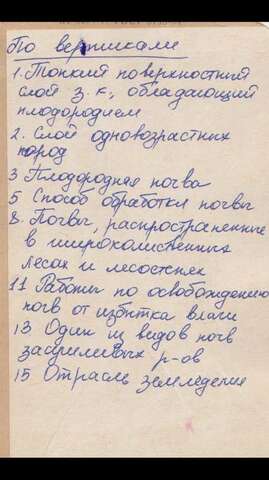 По вертикали
1. Тонкий поверхностный
слой з. к, обладающий
плодородием
2. Слой одновозрастных
пород
3 Плодородная почва
5 Способ обработки почвы
8. Почвы, распространенные
в широколиственных
лесах и лесостепях
11 Работы по освобождению
почв от избытка влаги
13 Один из видов почв
засушливых р-ов
15 Отрасль земледелия